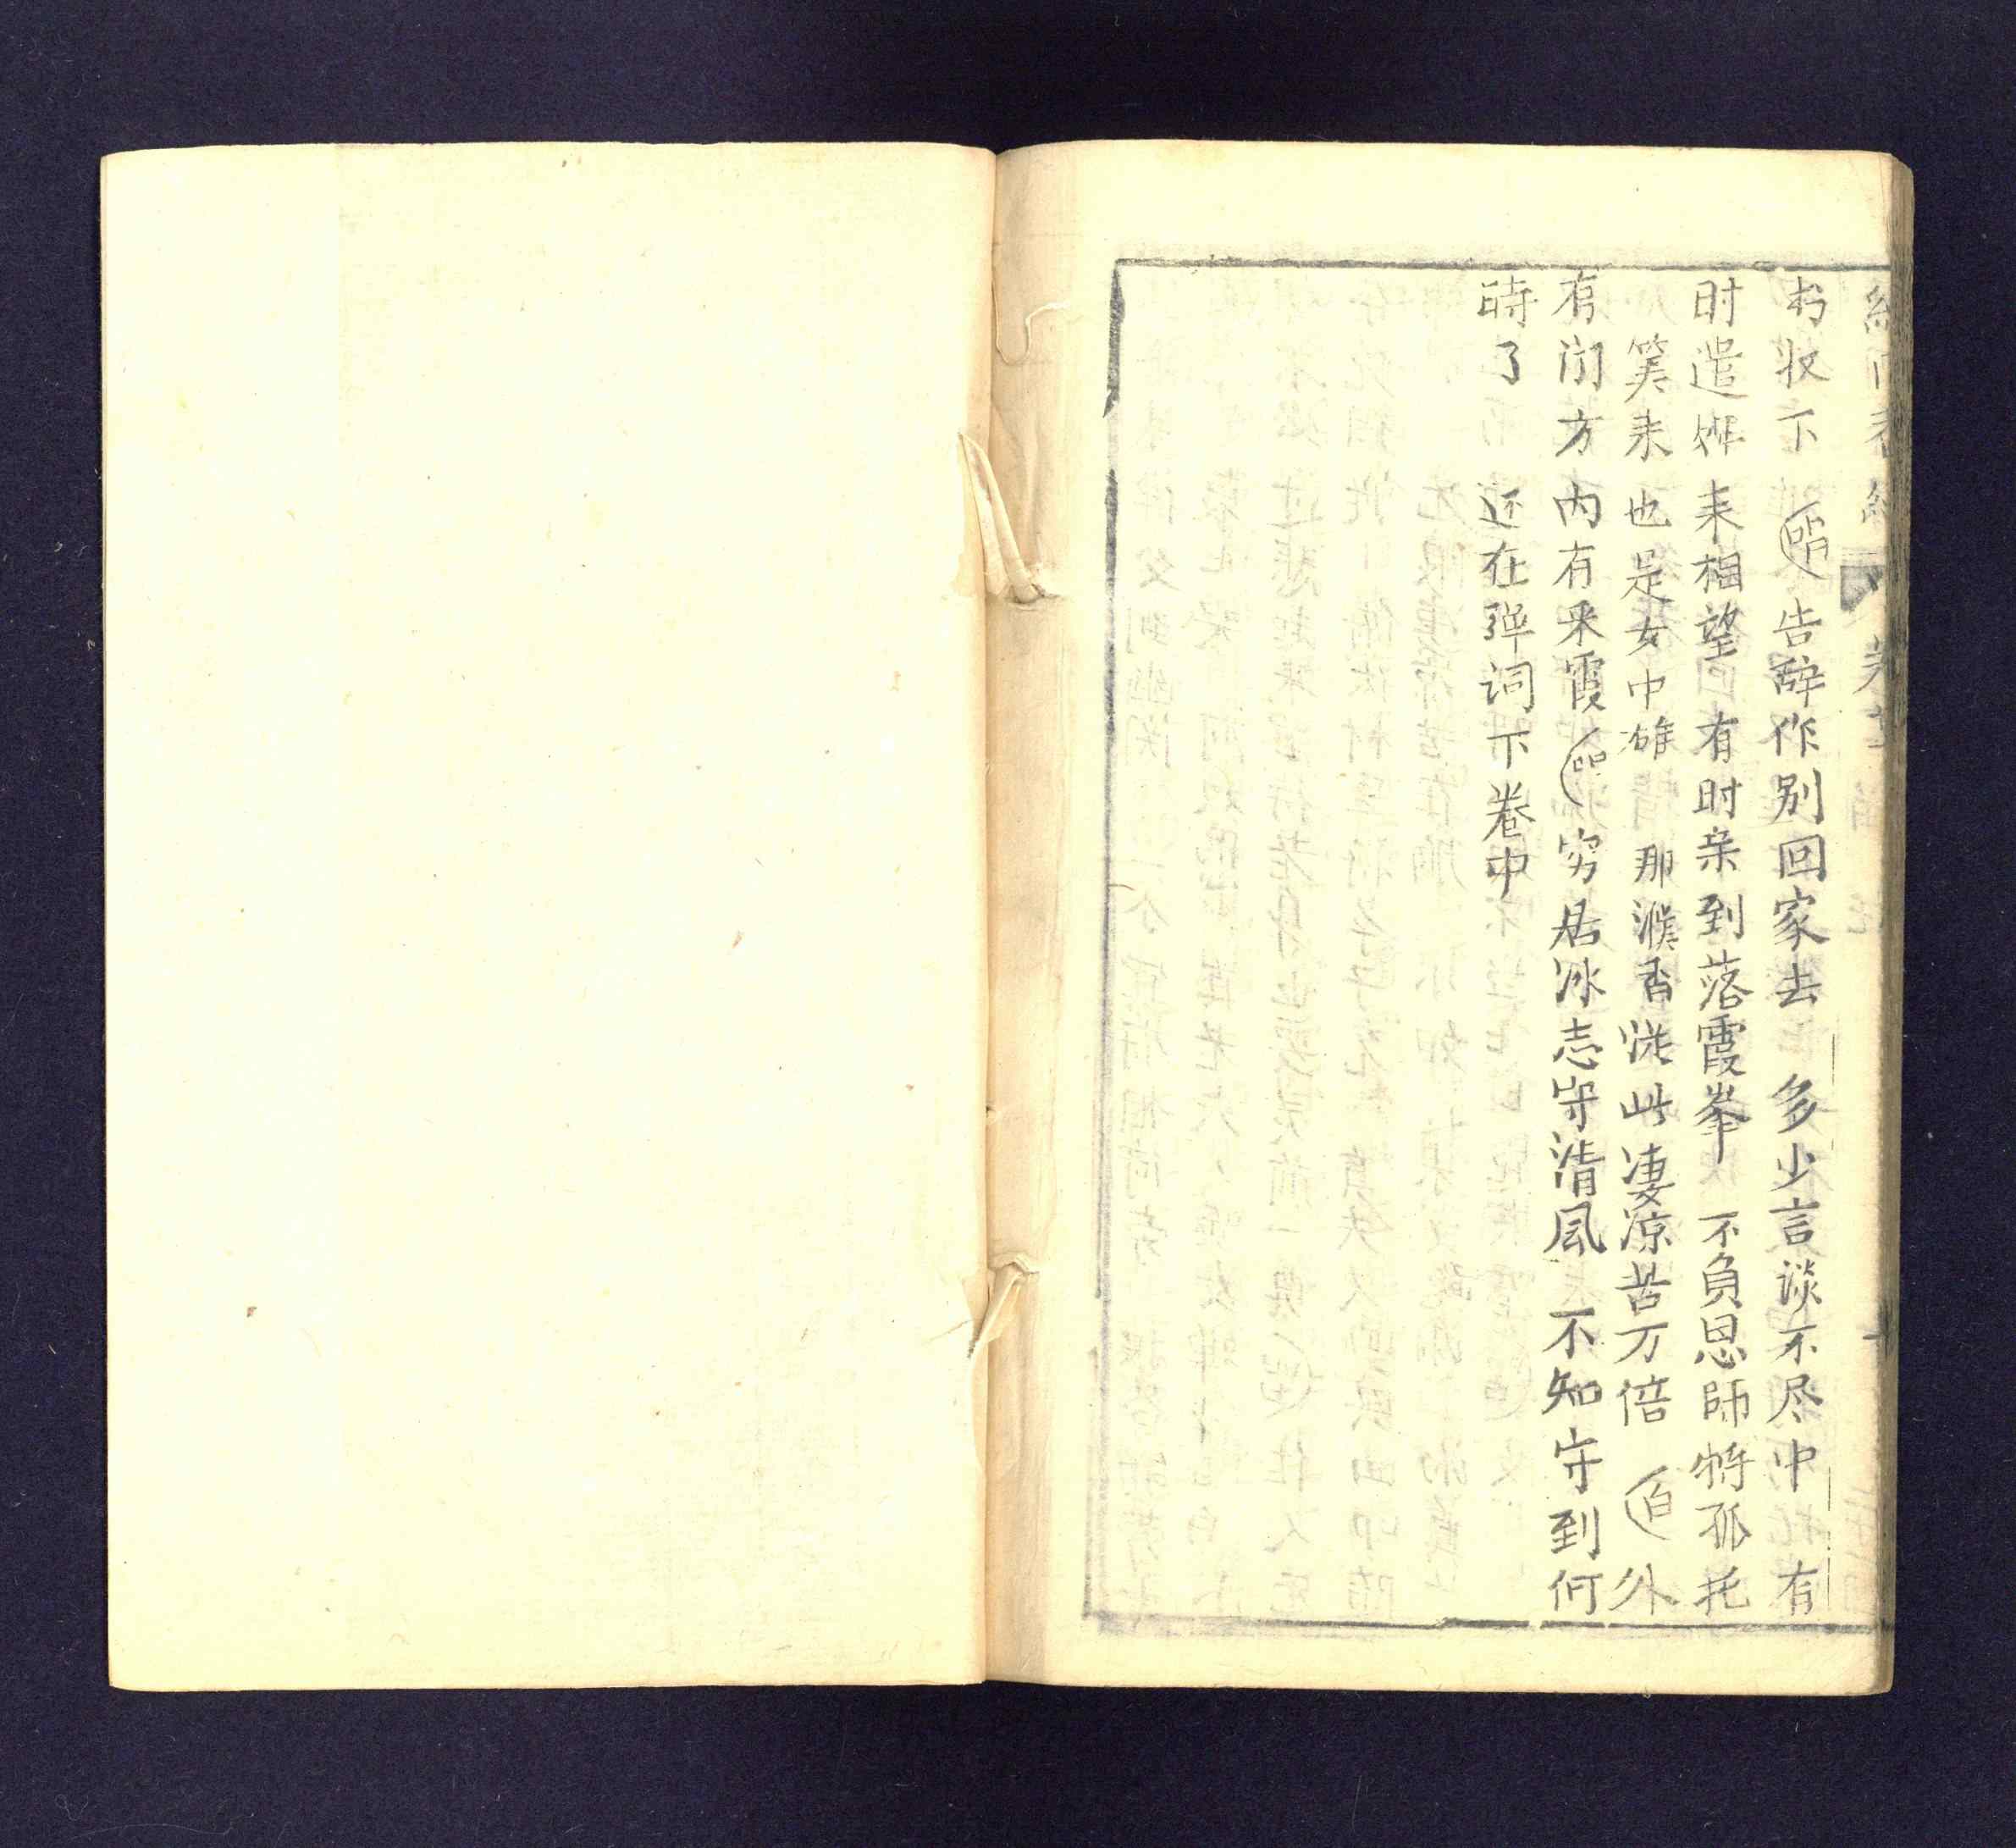 书收下 㗊 告辞作别回家去 多少言談不尽中 有
时遣婢来相望 有时亲到落霞峯 不負恩師特孤托
算来也是女中雄 那濮香 従此凄凉苦万倍 白 外
有闲方 内有采霞 㗊 穷居冰志守清風 不知守到何
時了 还在弹词下卷中